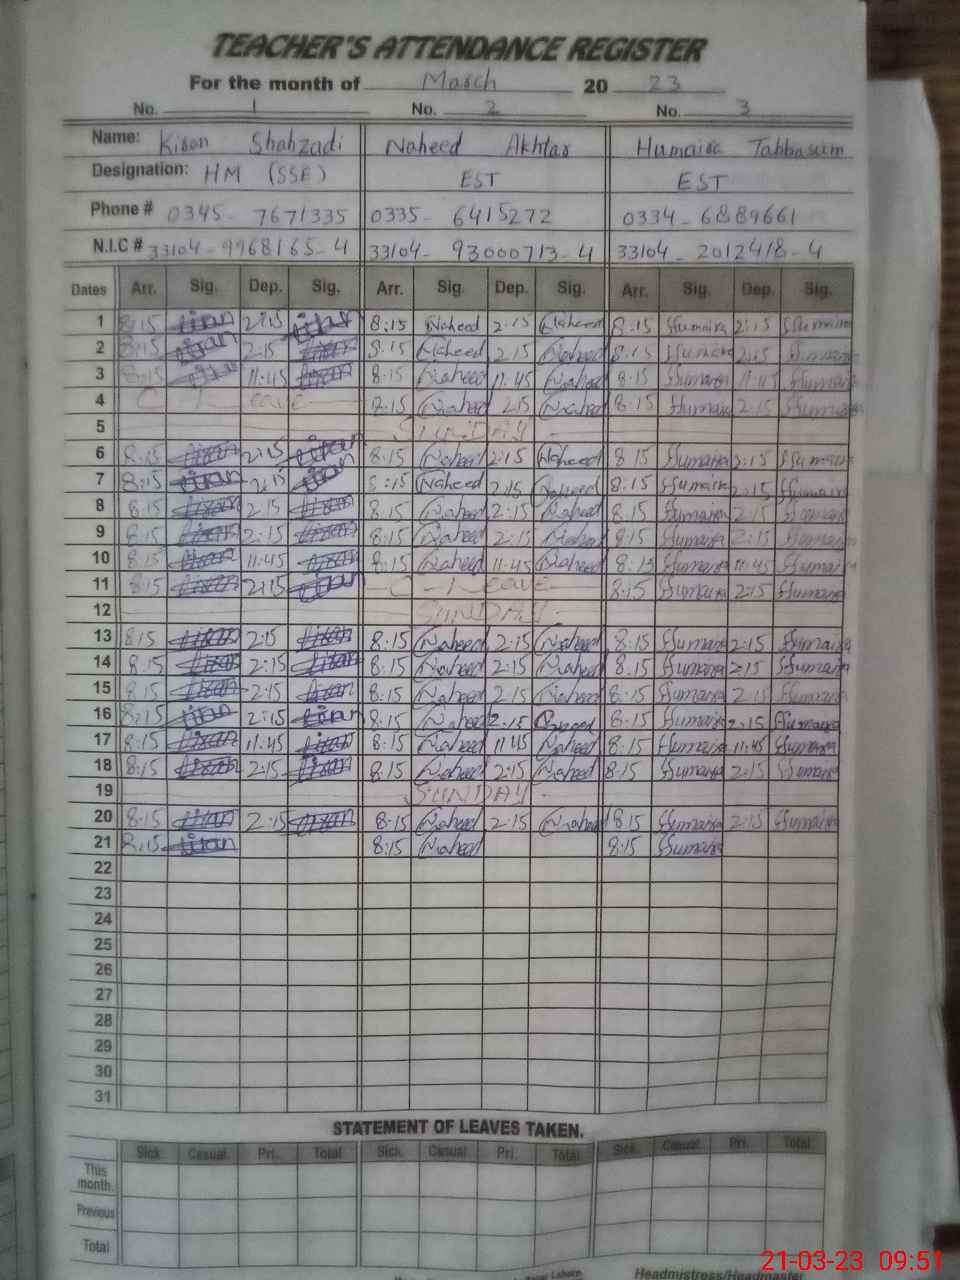 TEACHER'S ATTENDANCE REGISTER
For the month of March 20 23
No. 1 No. 2 No. 3
Name: Kiran Shahzadi Naheed Akhtar Humaira Tabbasum
Designation: HM (SSE) EST EST
Phone # 0345- 7671335 0335- 6415272 0334-6889661
N.I.C # 33104-9968165-4 33104- 9300713-4 33104-2012418-4
Dates Arr. Sig. Dep. Sig. Arr. Sig. Dep. Sig. Arr. Sig. Dep. Sig.
1 8:15 Kiran 2:15 Kiran 8:15 Naheed 2:15 Naheed 8:15 Humaira 2:15 Humaira
2 8:15 Kiran 2:15 Kiran 8:15 Naheed 2:15 Naheed 8:15 Humaira 2:15 Humaira
3 8:15 Kiran 11:45 Kiran 8:15 Naheed 11:45 Naheed 8:15 Humaira 11:45 Humaira
4 C - Leave 8:15 Naheed 2:15 Naheed 8:15 Humaira 2:15 Humaira
5 SUNDAY -
6 8:15 Kiran 2:15 Kiran 8:15 Naheed 2:15 Naheed 8:15 Humaira 2:15 Humaira
7 8:15 Kiran 2:15 Kiran 8:15 Naheed 2:15 Naheed 8:15 Humaira 2:15 Humaira
8 8:15 Kiran 2:15 Kiran 8:15 Naheed 2:15 Naheed 8:15 Humaira 2:15 Humaira
9 8:15 Kiran 2:15 Kiran 8:15 Naheed 2:15 Naheed 8:15 Humaira 2:15 Humaira
10 8:15 Kiran 11:45 Kiran 8:15 Naheed 11:45 Naheed 8:15 Humaira 11:45 Humaira
11 8:15 Kiran 2:15 Kiran C - Leave 8:15 Humaira 2:15 Humaira
12 SUNDAY -
13 8:15 Kiran 2:15 Kiran 8:15 Naheed 2:15 Naheed 8:15 Humaira 2:15 Humaira
14 8:15 Kiran 2:15 Kiran 8:15 Naheed 2:15 Naheed 8:15 Humaira 2:15 Humaira
15 8:15 Kiran 2:15 Kiran 8:15 Naheed 2:15 Naheed 8:15 Humaira 2:15 Humaira
16 8:15 Kiran 2:15 Kiran 8:15 Naheed 2:15 8:15 Humaira 2:15 Humaira
17 8:15 Kiran 11:45 Kiran 8:15 Naheed 11:45 Naheed 8:15 Humaira 11:45 Humaira
18 8:15 Kiran 2:15 Kiran 8:15 Naheed 2:15 Naheed 8:15 Humaira 2:15 Humaira
19 SUNDAY -
20 8:15 Kiran 2:15 Kiran 8:15 Naheed 2:15 Naheed 8:15 Humaira 2:15 Humaira
21 8:15 Kiran 8:15 Naheed 8:15 Humaira
22
23
24
25
26
27
28
29
30
31
STATEMENT OF LEAVES TAKEN.
Sick Casual Pri. Total Sick. Casual Pri. Total Sick. Casual. Pri. Total
This month.
Previous
Total
Lahore Headmistress/Headmaster
21-03-23 09:51